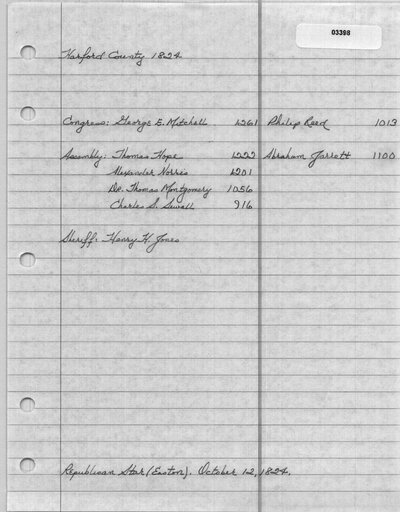 03398
Harford County 1824
Congress: George E. Mitchell 1261 Philip Reed 1013
Assembly: Thomas Hope 1222 Abraham Jarrett 1100
Alexander Norris 1201
Dr. Thomas Montgomery 1056
Charles S. Sewall 916
Sheriff: Henry H. Jones
Republican Star (Easton). October 12, 1824.